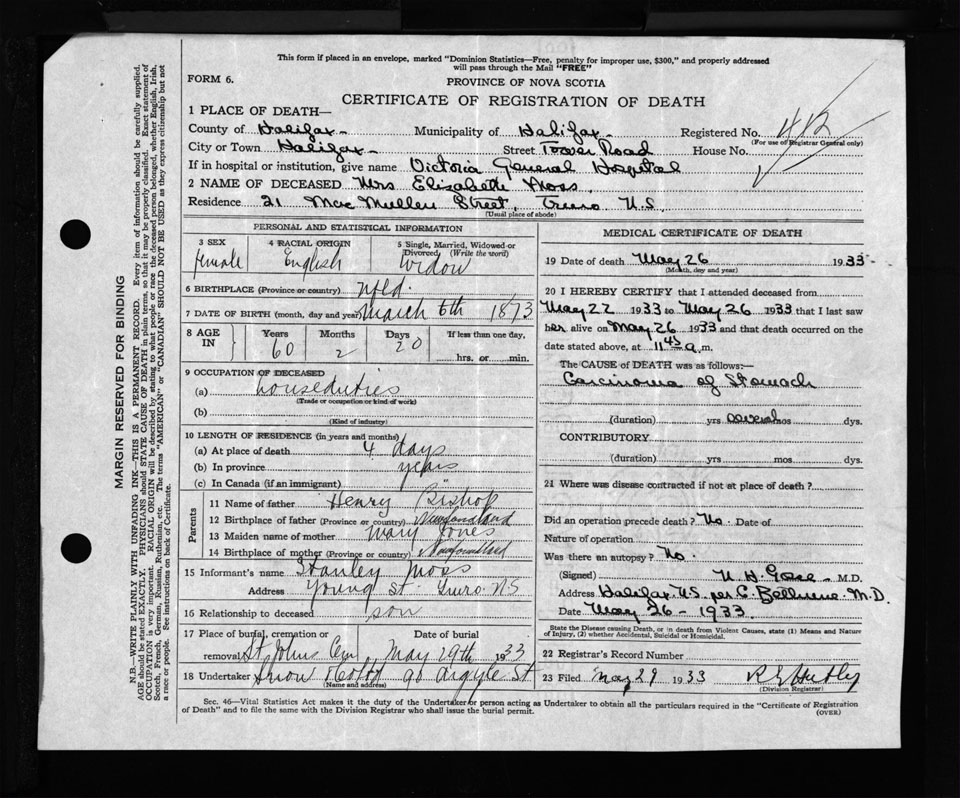 This form if placed in an envelope, marked "Dominion Statistics—Free, penalty for improper use, $300," and properly addressed
will pass through the Mail "FREE"
FORM 6.
PROVINCE OF NOVA SCOTIA
CERTIFICATE OF REGISTRATION OF DEATH
1 PLACE OF DEATH—
County of Halifax Municipality of Halifax Registered No. 412
(For use of Registrar General only)
City or Town Halifax Street Tower Road House No.
If in hospital or institution, give name Victoria General Hospital
2 NAME OF DECEASED Mrs Elizabeth Moss
Residence 21 MacMullen Street, Truro N.S.
(Usual place of abode)
PERSONAL AND STATISTICAL INFORMATION
3 SEX 4 RACIAL ORIGIN 5 Single, Married, Widowed or
Divorced (Write the word)
female English Widow
6 BIRTHPLACE (Province or country) Nfld.
7 DATE OF BIRTH (month, day and year) March 6th 1873
8 AGE IN Years Months Days If less than one day,
60 2 20 hrs. or min.
9 OCCUPATION OF DECEASED
(a) houseduties
(Trade or occupation or kind of work)
(b)
(Kind of industry)
10 LENGTH OF RESIDENCE (in years and months)
(a) At place of death 4 days
(b) In province years
(c) In Canada (if an immigrant)
Parents
11 Name of father Henry Bishop
12 Birthplace of father (Province or country) Newfoundland
13 Maiden name of mother Mary Jones
14 Birthplace of mother (Province or country) Newfoundland
15 Informant's name Stanley Moss
Address Young St. Truro NS
16 Relationship to deceased son
17 Place of burial, cremation or Date of burial
removal St Johns Cem May 29th 1933
18 Undertaker Snow 90 Argyle St
(Name and address)
MEDICAL CERTIFICATE OF DEATH
19 Date of death May 26 1933
(Month, day and year)
20 I HEREBY CERTIFY that I attended deceased from
May 22 1933 to May 26 1933 that I last saw
her alive on May 26 1933 and that death occurred on
date stated above, at 11 45 a.m.
The CAUSE OF DEATH was as follows:
Carcinoma of Stomach
(duration) yrs several mos dys.
CONTRIBUTORY
(duration) yrs mos dys.
21 Where was disease contracted if not at place of death?
Did an operation precede death? No. Date of
Nature of operation
Was there an autopsy? No.
(Signed) M.D.
Address Halifax N.S. per C. Bellmene M.D.
Date May 26 - 1933
State the Disease causing Death, or in death from Violent Causes, state (1) Means and Nature
of Injury, (2) whether Accidental, Suicidal or Homicidal.
22 Registrar's Record Number
23 Filed May 29 1933
(Division Registrar)
Sec. 46—Vital Statistics Act makes it the duty of the Undertaker or person acting as Undertaker to obtain all the particulars required in the "Certificate of Registration
of Death" and to file the same with the Division Registrar who shall issue the burial permit.
(OVER)
MARGIN RESERVED FOR BINDING
N.B.—WRITE PLAINLY WITH UNFADING INK—THIS IS A PERMANENT RECORD. Every item of information should be carefully supplied.
AGE should be stated EXACTLY. PHYSICIANS should STATE CAUSE OF DEATH in plain terms, so that it may be properly classified. Exact statement of
OCCUPATION is very important. RACIAL ORIGIN will be described by stating to what people or race the deceased person belonged, whether English, Irish,
Scotch, French, German, Russian, Ruthenian, etc. The terms "AMERICAN" or "CANADIAN" SHOULD NOT BE USED as they express citizenship but not
a race or people. See instructions on back of Certificate.